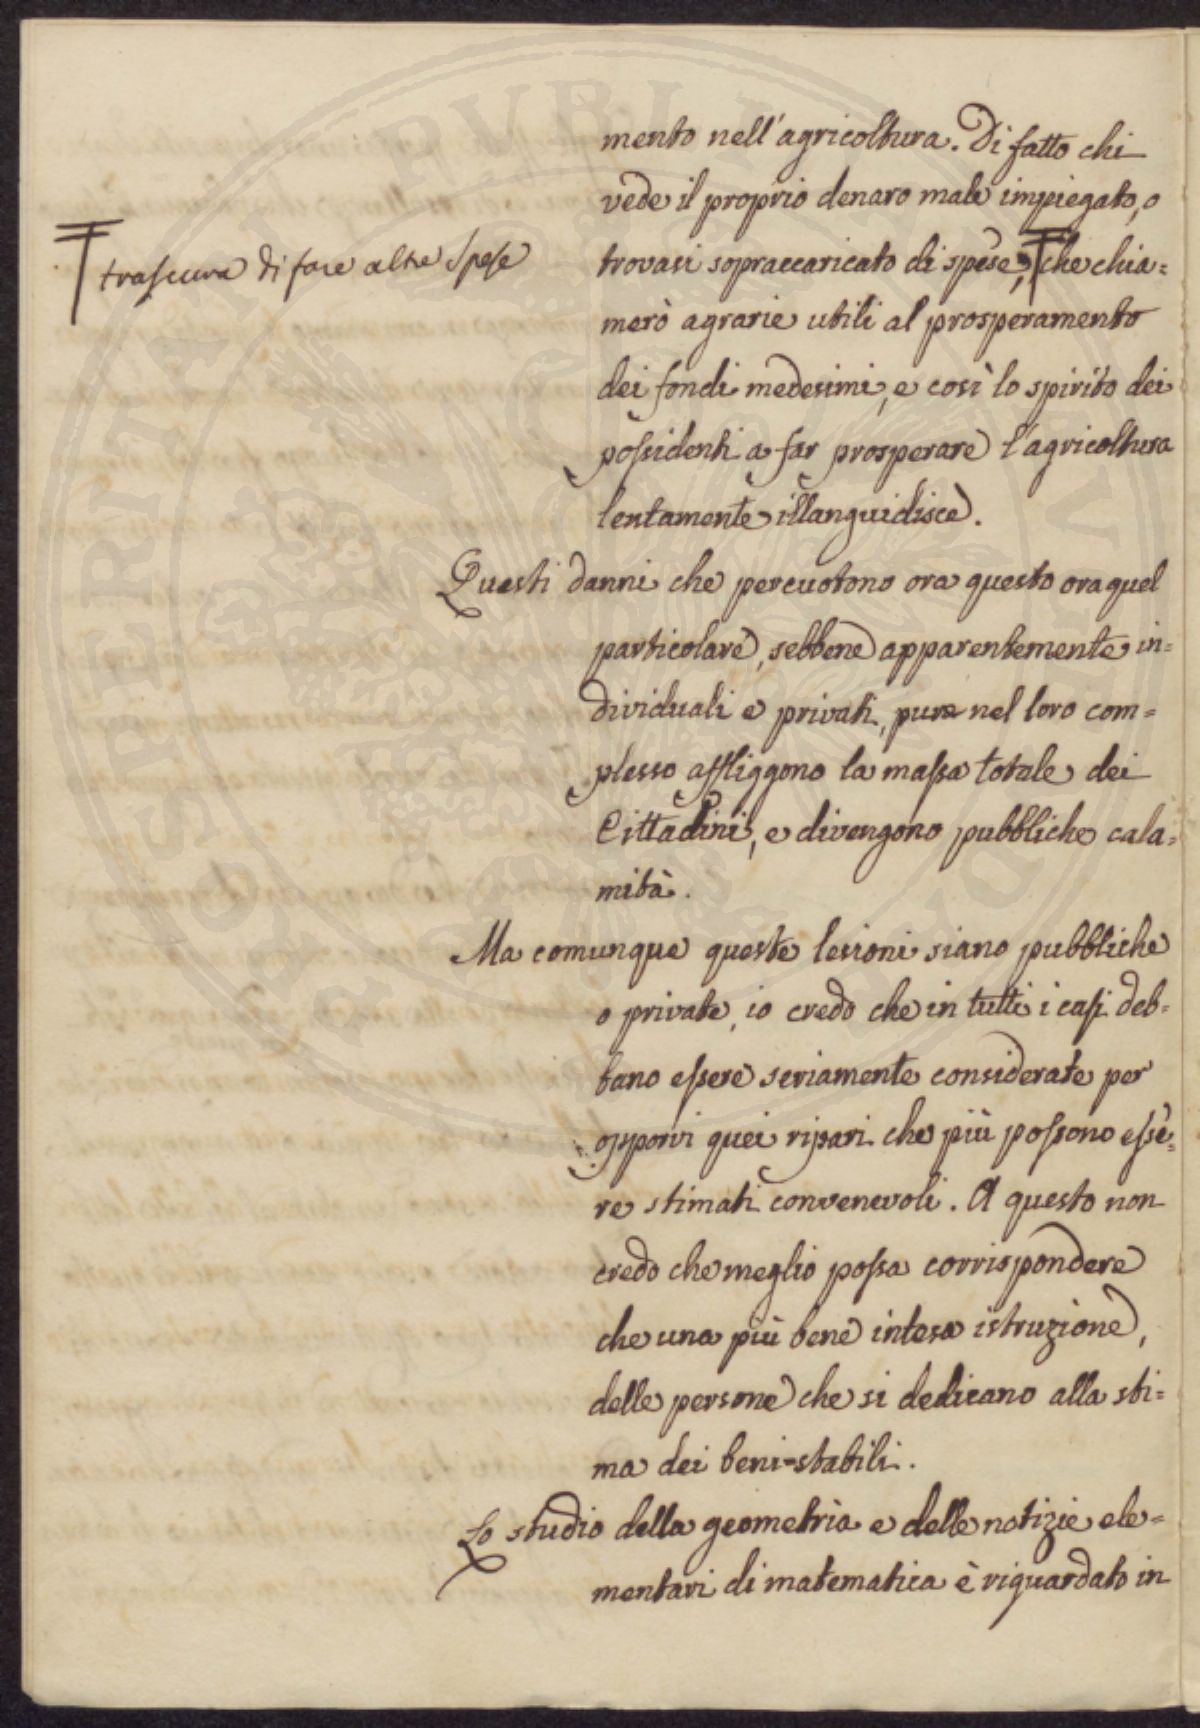 mento nell'agricoltura. Di fatto chi
vede il proprio denaro male impiegato, o
trovasi sopraccaricato di spese, che chia=
trascura di fare altre spese
merò agrarie utili al prosperamento
dei fondi medesimi, e così lo spirito dei
possidenti a far prosperare l'agricoltura
lentamente illanguidisce.
Questi danni che percuotono ora questo ora quel
particolare, sebbene apparentemente in=
dividuali e privati, pure nel loro com=
plesso affliggono la massa totale dei
Cittadini, e divengono pubbliche cala=
mità.
Ma comunque queste lesioni siano pubbliche
o private, io credo che in tutti i casi deb=
bano essere seriamente considerate per
opporvi quei ripari che più possono esse=
re stimati convenevoli. A questo non
credo che meglio possa corrispondere
che una più bene intesa istruzione,
delle persone che si dedicano alla sti=
ma dei beni=stabili.
Lo studio della geometria e delle notizie ele=
mentari di matematica è riguardato in